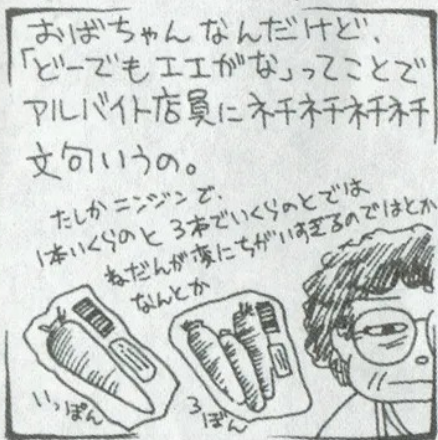 おばちゃんなんだけど、
「どーでもエエがな」ってことで
アルバイト店員にネチネチネチネチ
文句いうの。
たしかニンジンで、
1本いくらのと3本でいくらのとでは
ねだんが変にちがいすぎるのではとか
なんとか
いっぽん
3ぼん